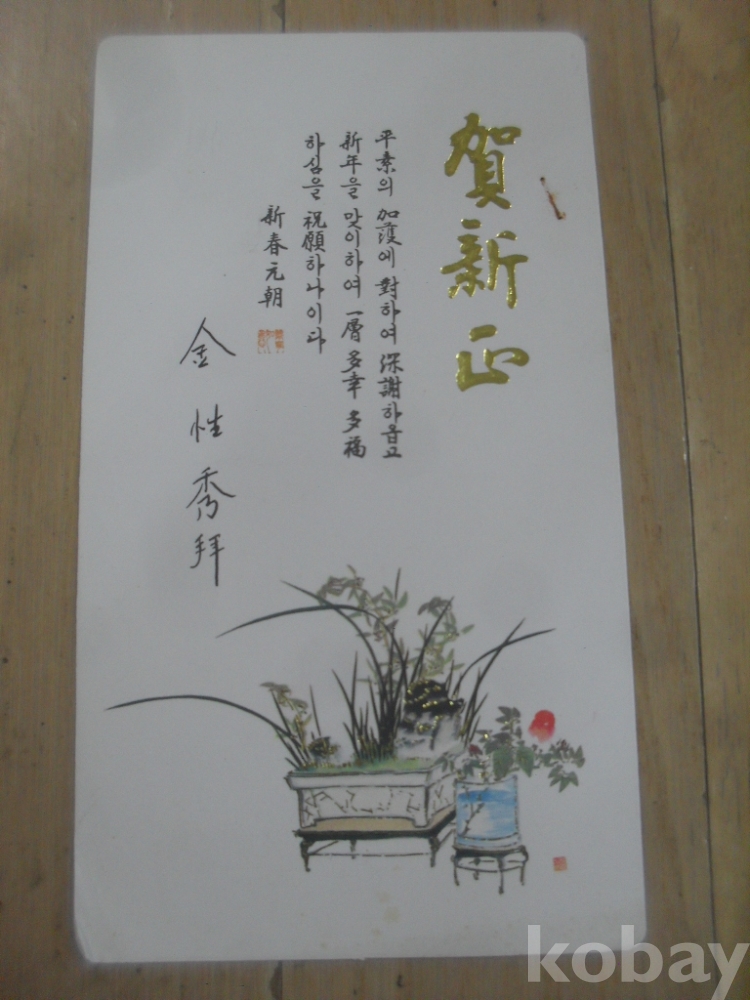 賀新正
平素의 加護에 對하여 深謝하옵고
新年을 맞이하여 一層 多幸 多福
하심을 祝願하나이다
新春元朝
金性秀拜
kobay